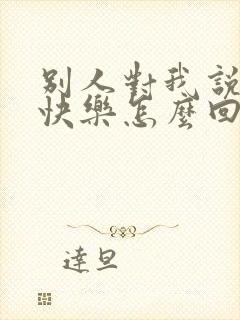 別人對我說
快樂怎麼回
達旦